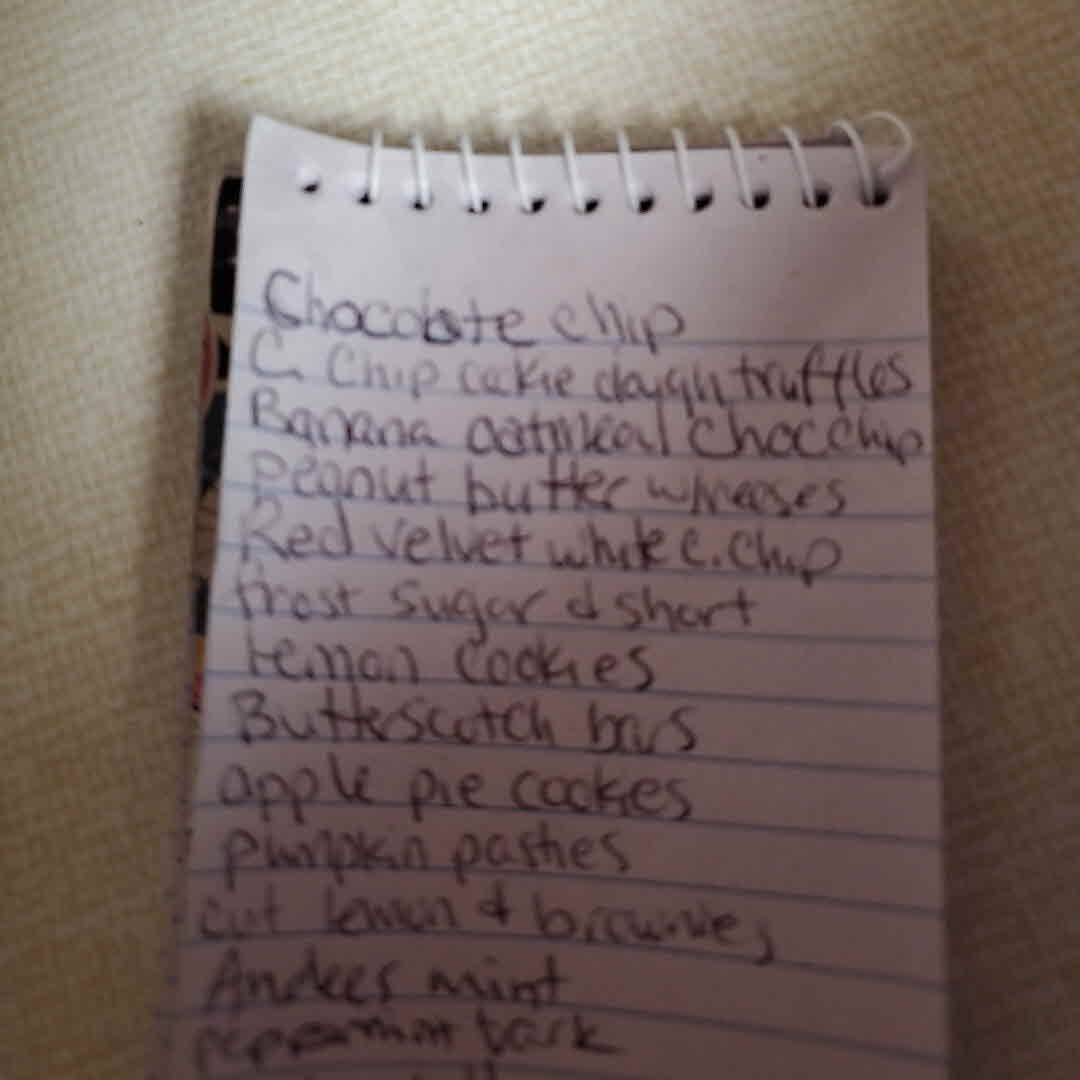 Chocolate chip
C. Chip cookie dough truffles
Banana oatmeal choc chip
peanut butter
Red velvet white c. chip
frost sugar & short
Lemon cookies
Butterscotch bars
apple pie cookies
pumpkin pasties
cut lemon & brownies
Andees mint
peppermint bark